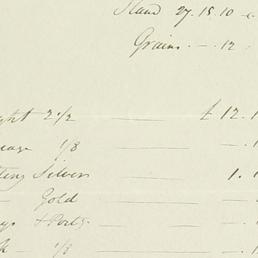 Stand 27.15.10
Grains . — . 12
ght 2 1/2 — £ 12.1
age 1/8 — — .
ting Silver 1.
— Gold — — .
gs & Ports — — .
k — 1/8 — — .